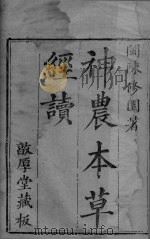 閩陳修園著
神農本草
經讀
敬厚堂藏板